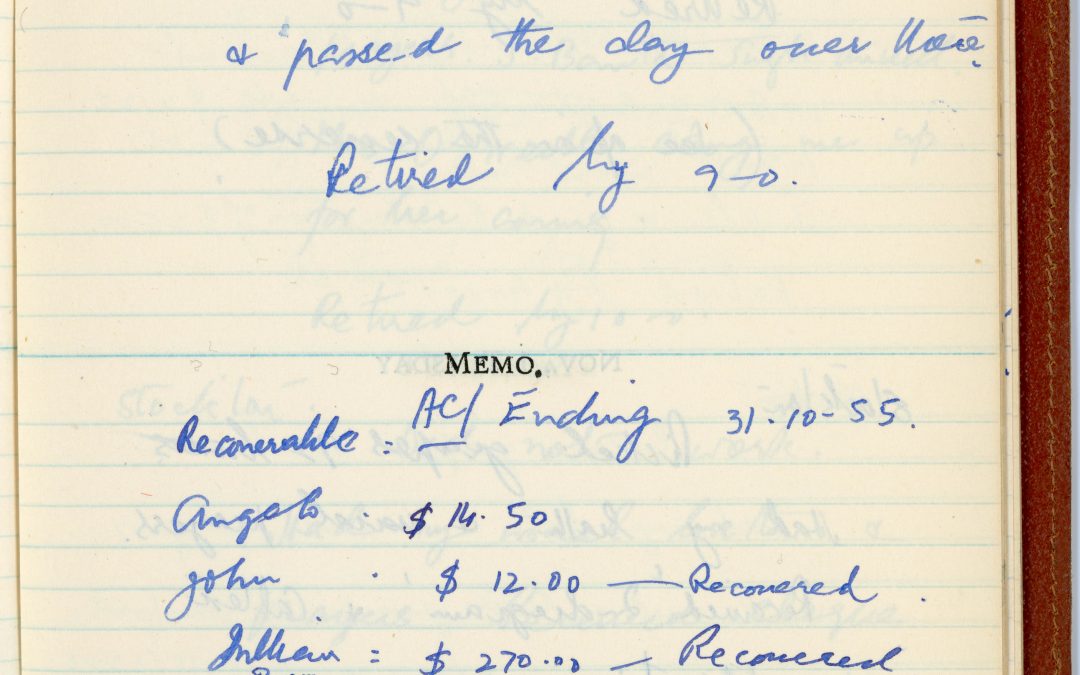 & passed the day over
Retired by 9-0.
MEMO.
A/C Ending 31-10-55.
Recoverable =
Angelo . $ 14.50
John . $ 12.00 — Recovered .
= $ 270.00 — Recovered